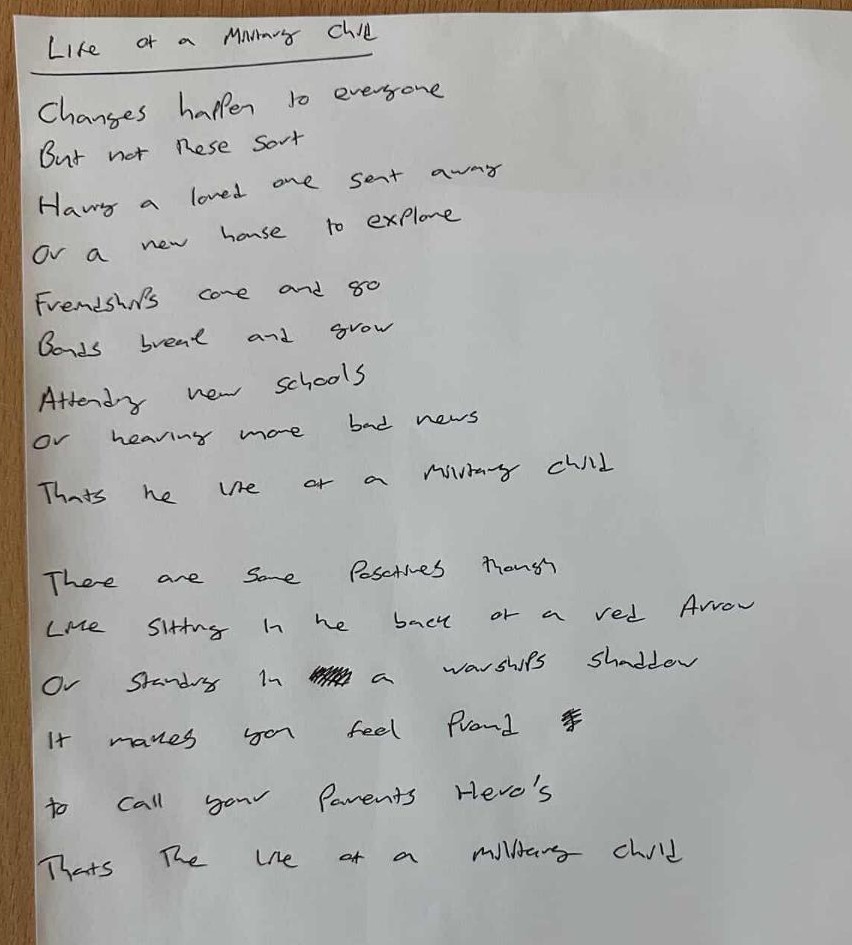 Life of a Military Child
Changes happen to everyone
But not these sort
Having a loved one sent away
Or a new house to explore
Friendships come and go
Bonds break and grow
Attending new schools
Or hearing more bad news
Thats the life of a military child
There are some Posatives though
Like sitting in the back of a red Arrow
Or standing in a warships shaddow
It makes you feel Proud
to call your Parents Hero's
Thats The life of a military child